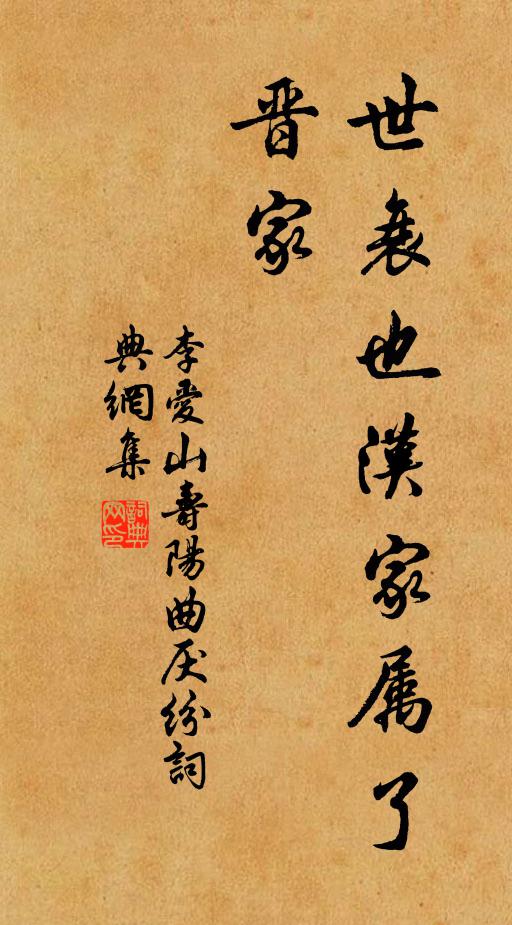 世衰也漢家属了
晋家
李愛山壽陽曲厌紛詞
典網集
詞典
网印